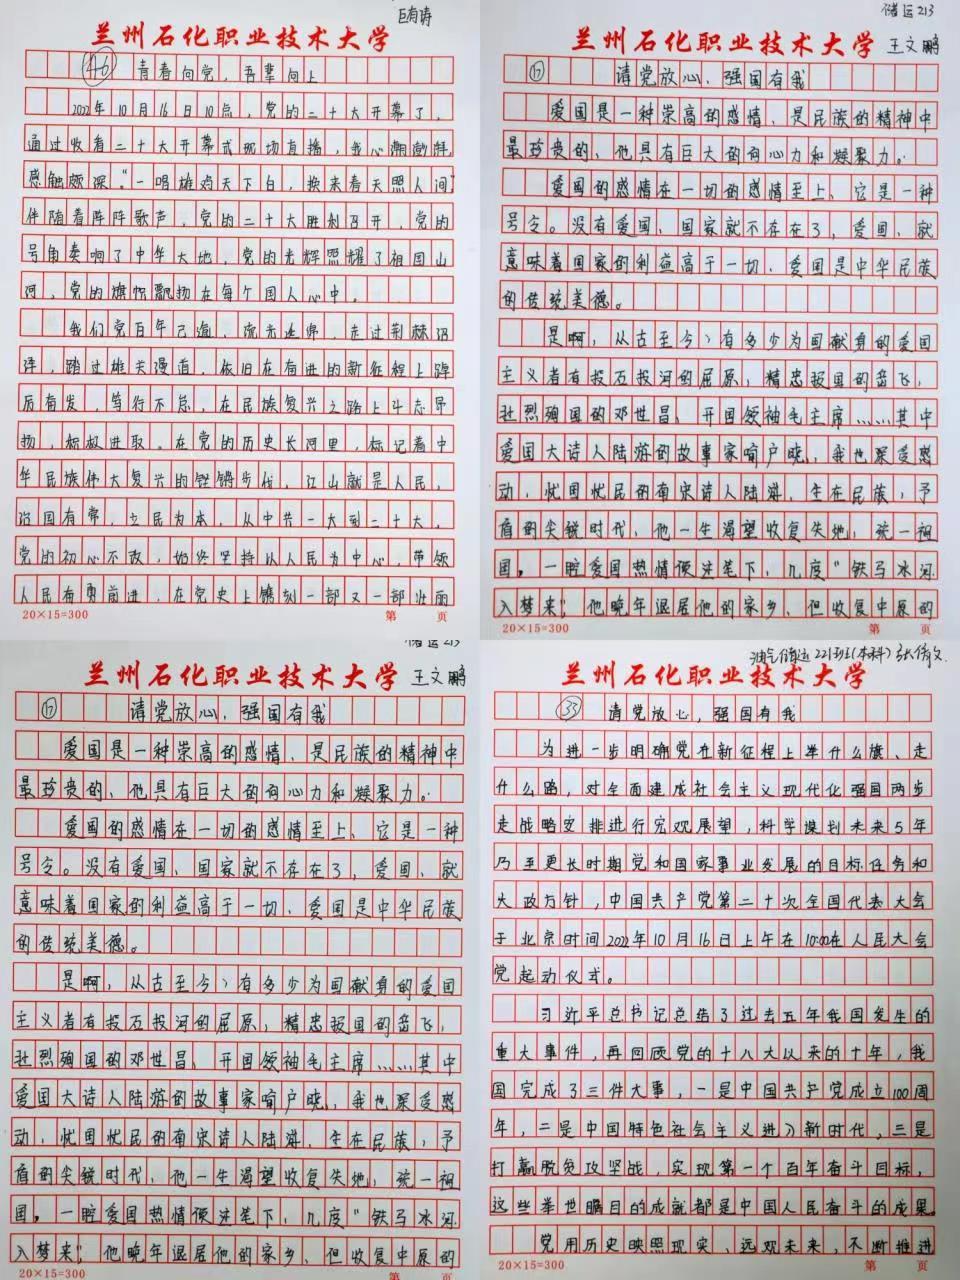 巨有涛
兰州石化职业技术大学
46 青春向党，吾辈向上
2022年10月16日10点，党的二十大开幕了，
通过收看二十大开幕式现场直播，我心潮澎湃，
感触颇深。“一唱雄鸡天下白，换来春天照人间”，
伴随着阵阵歌声，党的二十大胜利召开，党的
号角奏响了中华大地，党的光辉照耀了祖国山
河，党的旗帜飘扬在每个国人心中。
我们党百年已逾，流光逝帛，走过荆棘沼
泽，踏过雄关漫道，依旧在有进的新征程上踔
厉奋发，笃行不怠，在民族复兴之路上斗志昂
扬，积极进取。在党的历史长河里，标记着中
华民族伟大复兴的铿锵步伐，江山就是人民，
治国有常，立民为本，从中共一大到二十大，
党的初心不改，始终坚持以人民为中心，带领
人民有勇前进，在党史上镌刻一部又一部壮丽
20×15=300
第 页
储运213
兰州石化职业技术大学
王文鹏
17 请党放心、强国有我
爱国是一种崇高的感情、是民族的精神中
最珍贵的、他具有巨大的向心力和凝聚力。
爱国的感情在一切的感情至上、它是一种
号令。没有爱国、国家就不存在了，爱国、就
意味着国家的利益高于一切、爱国是中华民族
的传统美德。
是啊，从古至今，有多少为国献身的爱国
主义者有投石投河的屈原，精忠报国的岳飞，
壮烈殉国的邓世昌、开国领袖毛主席……其中
爱国大诗人陆游的故事家喻户晓，我也深受感
动，忧国忧民的南宋诗人陆游，生在民族，矛
盾的尖锐时代，他一生渴望收复失地，统一祖
国，一腔爱国热情便迸笔下，几度“铁马冰河
入梦来”。他晚年退居他的家乡、但收复中原的
20×15=300
第 页
储运213
兰州石化职业技术大学
王文鹏
17 请党放心、强国有我
爱国是一种崇高的感情、是民族的精神中
最珍贵的、他具有巨大的向心力和凝聚力。
爱国的感情在一切的感情至上、它是一种
号令。没有爱国、国家就不存在了，爱国、就
意味着国家的利益高于一切、爱国是中华民族
的传统美德。
是啊，从古至今，有多少为国献身的爱国
主义者有投石投河的屈原，精忠报国的岳飞，
壮烈殉国的邓世昌、开国领袖毛主席……其中
爱国大诗人陆游的故事家喻户晓，我也深受感
动，忧国忧民的南宋诗人陆游，生在民族，矛
盾的尖锐时代，他一生渴望收复失地，统一祖
国，一腔爱国热情便迸笔下，几度“铁马冰河
入梦来”。他晚年退居他的家乡、但收复中原的
20×15=300
第 页
油气储运221班(本科) 张倩文
兰州石化职业技术大学
33 请党放心，强国有我
为进一步明确党在新征程上举什么旗、走
什么路，对全面建成社会主义现代化强国两步
走战略安排进行宏观展望，科学谋划未来5年
乃至更长时期党和国家事业发展的目标任务和
大政方针，中国共产党第二十次全国代表大会
于北京时间2022年10月16日上午在10:00在人民大会
党起动仪式。
习近平总书记总结了过去五年我国发生的
重大事件，再回顾党的十八大以来的十年，我
国完成了三件大事，一是中国共产党成立100周
年，二是中国特色社会主义进入新时代，三是
打赢脱贫攻坚战，实现第一个百年奋斗目标，
这些举世瞩目的成就都是中国人民奋斗的成果。
党用历史映照现实、远观未来，不断推进
20×15=300
第 页